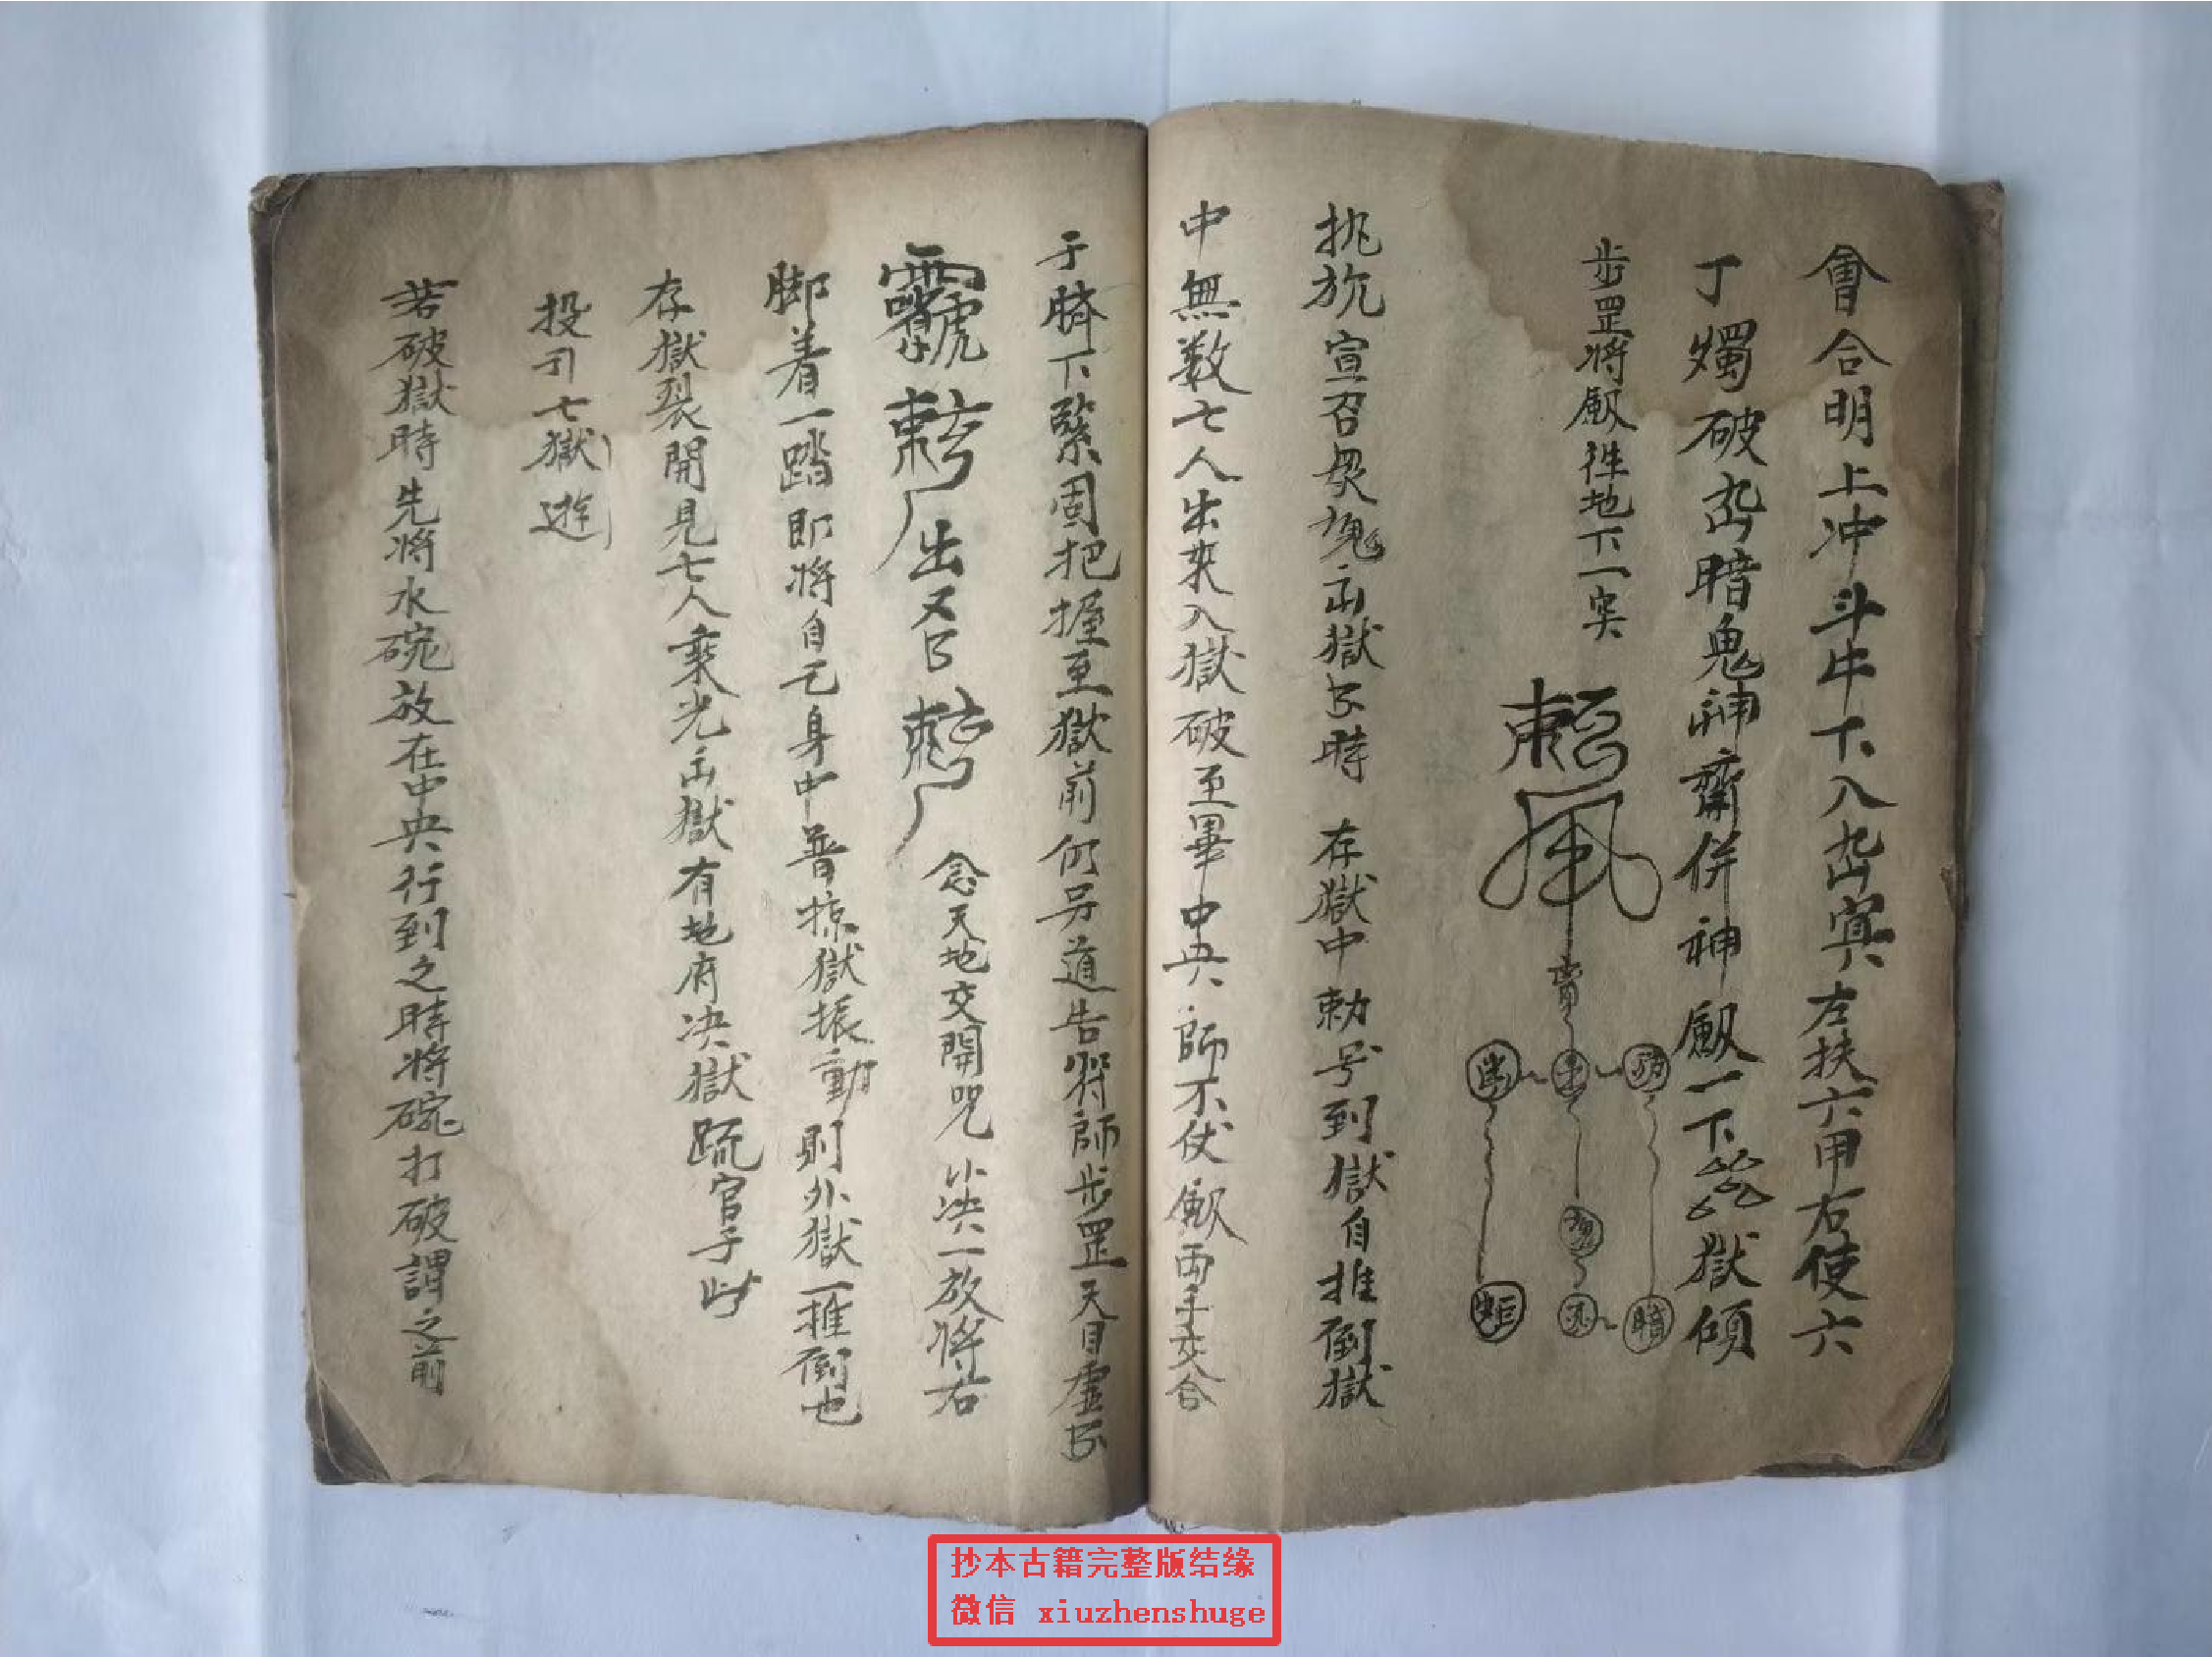 會合明上冲斗牛下入岳冥左扶六甲右使六
丁燭破岳暗鬼神齋併神劔一下獄傾
步罡將劔徃地下一
挑旂宣召衆魂出獄时時 存獄中勅号到獄自推倒獄
中無数七人出來入獄破至畢中央師不仗劔両手交合
于臍下緊固把握至獄前仍另道告將師步罡天目虚
出又 念天地交開咒 决一放將右
脚着一踏即將自己身中普掠獄振動則外獄一推倒也
存獄裂開見七人乘光出獄有地府决獄 官子此
投引七獄遊
若破獄時先將水碗放在中央行到之時將碗打破謂之前
抄本古籍完整版结缘
微信 xiuzhenshuge